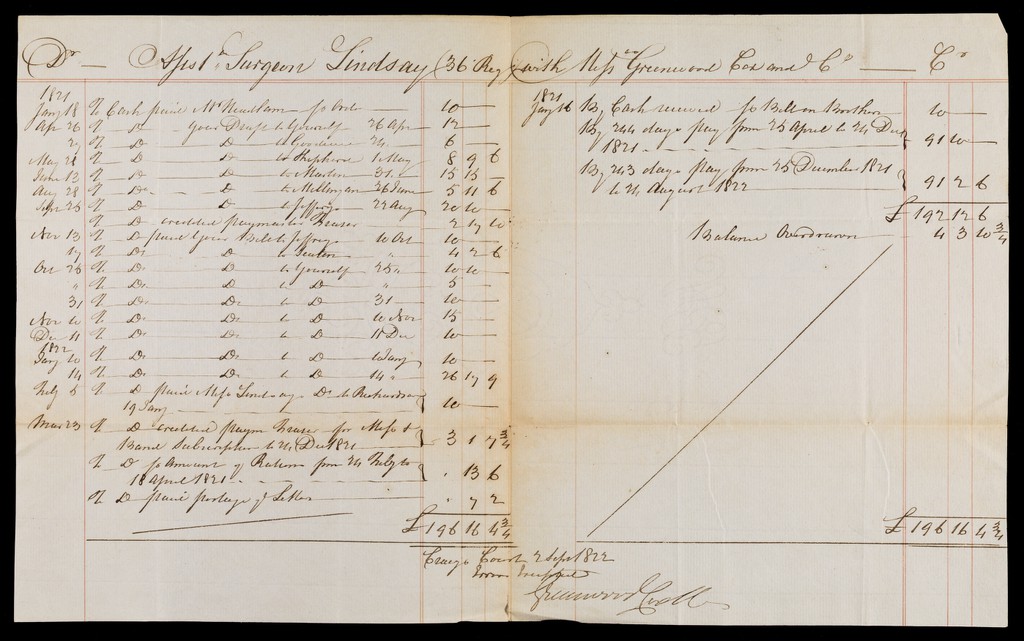 Dr — Assist. Surgeon Lindsay (36 Reg.) with Messrs Greenwood Cox and Co — Cr
1821
Jany 18 To Cash paid Mr Needham 10 —
Apr 26 To Do your Draft to Yourself 26 Apr 12 —
27 To Do Do to Goodwin 24 6 —
May 21 To Do Do to Shepherd 1 May 8 9 6
June 13 To Do Do to Martin 31 15 15 —
Aug 28 To Do Do to Milligan 26 June 5 11 6
Sepr 25 To Do Do to Jeffreys 22 Aug 20 10 —
To Do credited paymaster Fraser 2 17 10
Nov 13 To Do paid your Bill to Jeffreys 10 Oct 10 —
17 To Do Do to " 4 2 6
Oct 26 To Do Do to Yourself 25 " 10 10 —
" To Do Do to Do " 5 —
31 To Do Do to Do 31 10 —
Nov 10 To Do Do to Do 10 Nov 15 —
Dec 11 To Do Do to Do 11 Dec 10 —
1822
Jany 10 To Do Do to Do 10 Jany 10 —
14 To Do Do to Do 14 " 26 17 9
Feby 5 To Do paid Miss Lindsay Do to Richardson
19 Jany 10 —
Mar 23 To Do credited paym Fraser for Mess &
Band Subscription to 24 Dec 1821 3 1 7 3/4
To Do for Amount of Rations from 24 Feby to
18 April 1821 . 13 6
To Do paid postage of Letter " 7 2
£ 196 16 4 3/4
1821
Jany 16 By Cash received for Bill on 10 —
By 244 days pay from 25 April to 24 Decr
1821 91 10 —
By 243 days pay from 25 December 1821
to 24 August 1822 91 2 6
£ 192 12 6
Balance Overdrawn 4 3 10 3/4
£ 196 16 4 3/4
Craig's Court 2 Sepr 1822
Errors Excepted
Greenwood Cox & Co